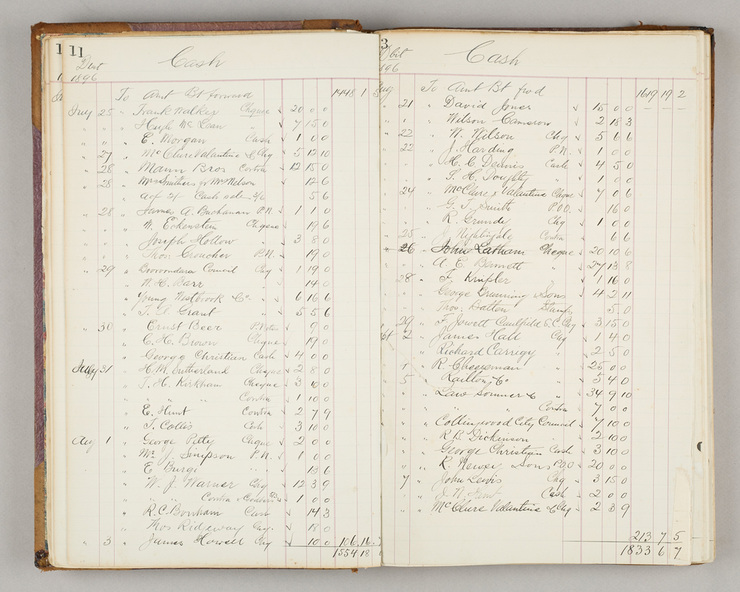 11 Cash
1896
To Amt Bt forward 1448 1
July 25 " Frank Walker Cheque 20 0 0
" Hugh McLean " 7 15 0
" E. Morgan Cash 1 0 0
" 27 " McClure Valantine & Chq 5 12 10
" 28 " Mann Bros Contra 12 15 0
" 28 " 12 6
Cash sale 5 6
" 28 " James A. Buchanan P.N. 1 1 0
" W. Eckenstein Cheque 19 6
" Joseph Hollow " 3 8 0
" Thos Croucher P.N. 19 0
" 29 " Council Chq 1 19 0
" 14 0
" Young Westbrook Co " 6 16 6
" Grant " 5 5 6
" 30 " Ernst Beer 9 0
" C. H. Brown Cheque
" George Christian Cash 4 0 0
July 31 " H. M. Sutherland Cheque 2 8 0
" J. H. Kirkham Cheque 3 10 0
" " " Contra 1 10 0
" E. Hunt Contra 2 7 9
" Collis Cash 3 10 0
Aug 1 " George Petty Cheque 2 0 0
" Mr J. Simpson P.N. 1 0 0
" E Burge " 13 6
" W. J. Warner Chq 12 3 9
" " Contra 1 0 0
" R. C. Bonham Cash 14 3
" Thos Ridgway Chq 18 0
" 3 " James Howell Chq 10 0 106 16
1554 18
3 Cash
To Amt Bt fwd 1619 19 2
" 21 " David Jones 15 0 0
" Wilson Cameron 2 18 3
" 22 " W. Wilson Chq 5 6 6
" 22 " J. Harding P.N. 1 0 0
" H. C. Dennis Cash 4 5 0
" S. H. Doughty " 1 0 0
" 24 " McClure Valantine Cheque 7 0 6
" G. T. Smith P.O.O. 16 0
" R. Grunde Chq 1 0 0
" 25 " J. Nightingale Contra 6 6
" 26 " John Latham Cheque 20 10 6
" A. E. Bennett " 27 13 8
" 28 " F. Knipler " 1 16 0
" George Greening & Sons " 4 2 11
" Thos. Hatton Stamps 5 0
" 29 " F. Jowett Caulfield S.C. Chq 3 15 0
2 " James Hall Chq 1 4 0
" Richard Carregy " 2 5 0
" R. Cheesman " 25 0 0
" 5 " Railton & Co " 3 4 0
" Law Somner & " 34 9 10
" " " Contra 7 0 0
" Collingwood City Council 7 10 0
" R. B. Dickinson " 2 10 0
" George Christian Cash 3 10 0
" R. & Sons P.O.O 20 0 0
" 7 " John Lewis Chq 3 15 0
" Cash 2 0 0
" McClure Valantine & Chq 2 8 9
213 7 5
1833 6 7